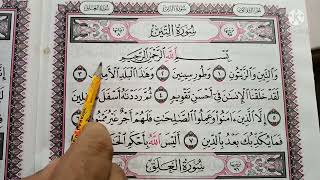 سُورَةُ التِّينِ
بِسْمِ اللَّهِ الرَّحْمَٰنِ الرَّحِيمِ
وَالتِّينِ وَالزَّيْتُونِ ١ وَطُورِ سِينِينَ ٢ وَهَٰذَا الْبَلَدِ الْأَمِينِ ٣
لَقَدْ خَلَقْنَا الْإِنسَٰنَ فِي أَحْسَنِ تَقْوِيمٍ ٤ ثُمَّ رَدَدْنَٰهُ أَسْفَلَ سَٰفِلِينَ
إِلَّا الَّذِينَ ءَامَنُوا وَعَمِلُوا الصَّٰلِحَٰتِ فَلَهُمْ أَجْرٌ غَيْرُ
فَمَا يُكَذِّبُكَ بَعْدُ بِالدِّينِ ٧ أَلَيْسَ اللَّهُ بِأَحْكَمِ
سُورَةُ الْعَلَقِ